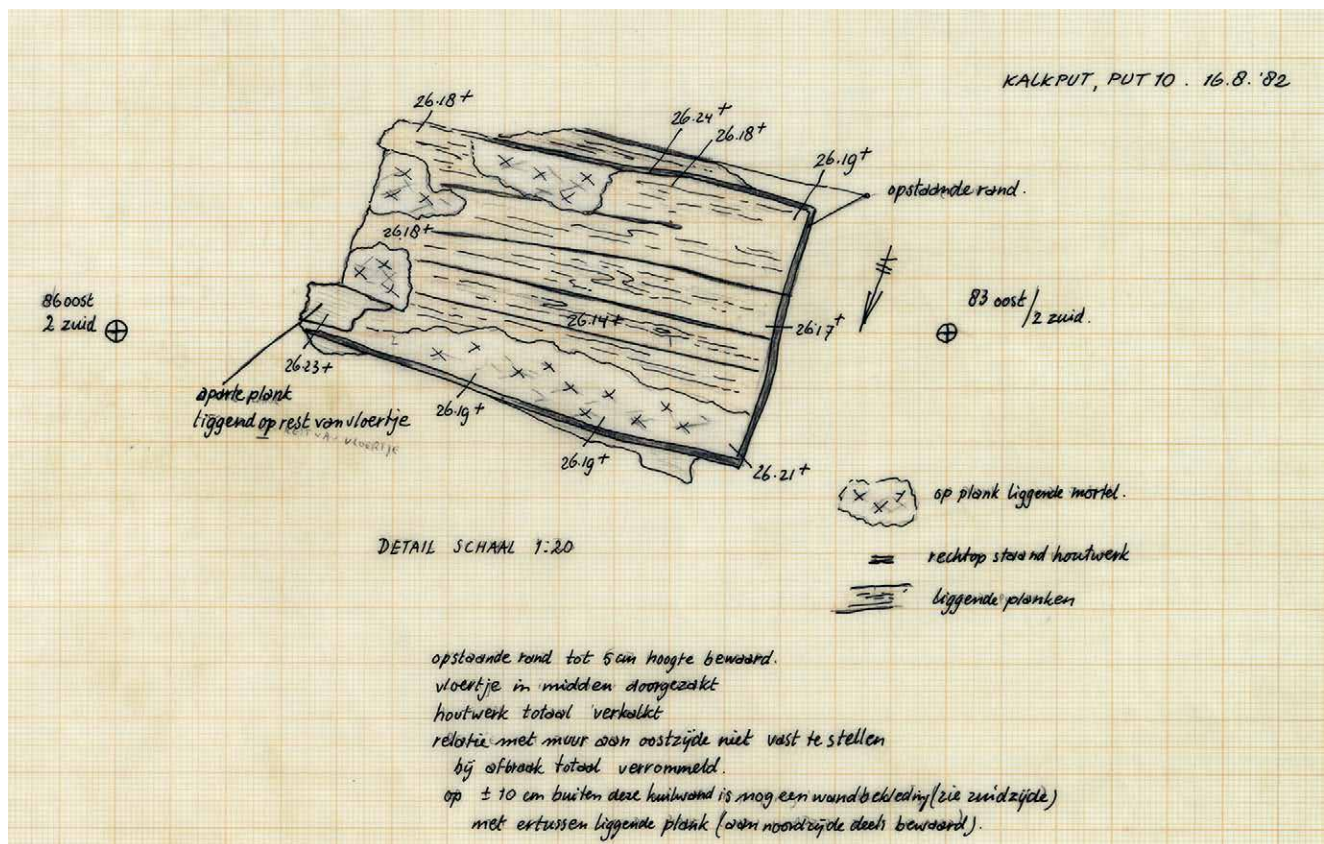 KALKPUT, PUT 10 . 16.8.'82
26.18+
26.24+
26.18+
26.19+
opstaande rand.
26.18+
86 oost
2 zuid
83 oost/
2 zuid.
26.14+
26.17+
26.23+
aparte plank
liggend op rest van vloertje
REST VAN VLOERTJE
26.19+
26.19+
26.21+
op plank liggende mortel.
DETAIL SCHAAL 1:20
rechtop staand houtwerk
liggende planken
opstaande rand tot 5 cm hoogte bewaard.
vloertje in midden doorgezakt
houtwerk totaal verkalkt
relatie met muur aan oostzijde niet vast te stellen
bij afbraak totaal verrommeld.
op ± 10 cm buiten deze kuilwand is nog een wandbekleding (zie zuidzijde)
met ertussen liggende plank (aan noordzijde deels bewaard).